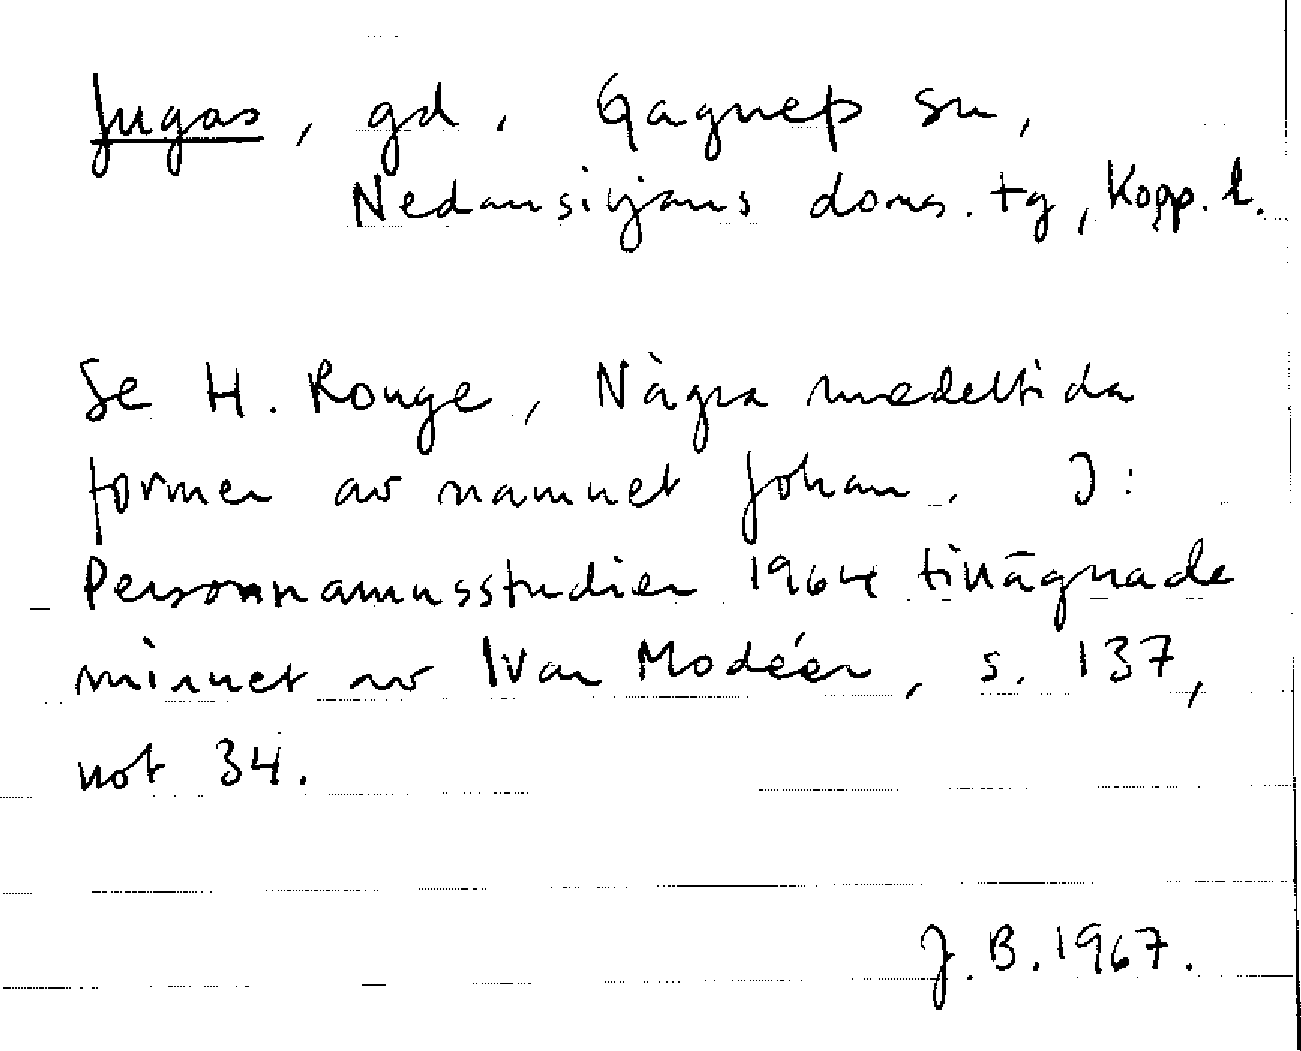 Jugas, gd, Gagnefs sn,
Nedansiljans doms. tg, Kopp. l.
Se H. Ronge, Några medeltida
former av namnet Johan. I:
Personnamnsstudier 1964 tillägnade
minnet av Ivar Modéer, s. 137,
not 34.
J. B. 1967.